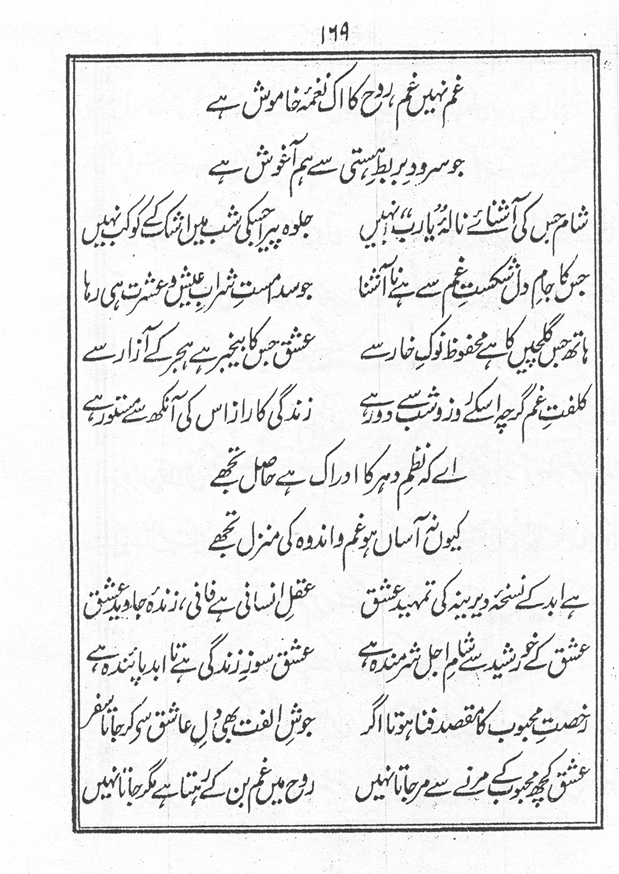 ۱۶۹
غم نہیں غم، روح کا اک نغمۂ خاموش ہے
جو سرودِ بربطِ ہستی سے ہم آغوش ہے
شام جس کی آشنائے نالۂ "یارب" نہیں جلوہ پیرا جس کی شب میں اشک کے کوکب نہیں
جس کا جامِ دل شکستِ غم سے ہے ناآشنا جو سدا مستِ شرابِ عیش و عشرت ہی رہا
ہاتھ جس گلچیں کا ہے محفوظ نوکِ خار سے عشق جس کا بیخبر ہے ہجر کے آزار سے
کلفتِ غم گرچہ اسکے روز و شب سے دور ہے زندگی کا راز اس کی آنکھ سے مستور ہے
اے کہ نظمِ دہر کا ادراک ہے حاصل تجھے
کیوں نہ آساں ہو غم و اندوہ کی منزل تجھے
ہے ابد کے نسخۂ دیرینہ کی تمہید عشق عقلِ انسانی ہے فانی، زندۂ جاوید عشق
عشق کے خورشید سے شامِ اجل شرمندہ ہے عشق سوزِ زندگی ہے تا ابد پائندہ ہے
رخصتِ محبوب کا مقصد فنا ہوتا اگر جوشِ الفت بھی دلِ عاشق سے کر جاتا سفر
عشق کچھ محبوب کے مرنے سے مر جاتا نہیں روح میں غم بن کے رہتا ہے مگر جاتا نہیں